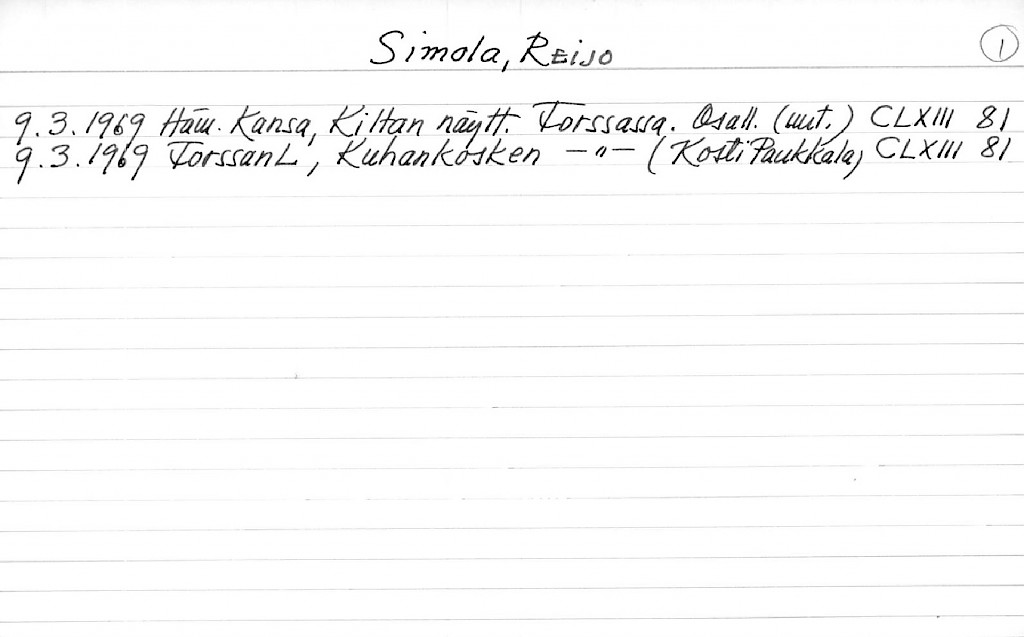 Simola, REIJO
1
9.3.1969 Häm. Kansa, Kiltan näytt. Forssassa. Osall. (uut.) CLXIII 81
9.3.1969 ForssanL, Kuhankosken —〃— (Kosti Paukkala) CLXIII 81